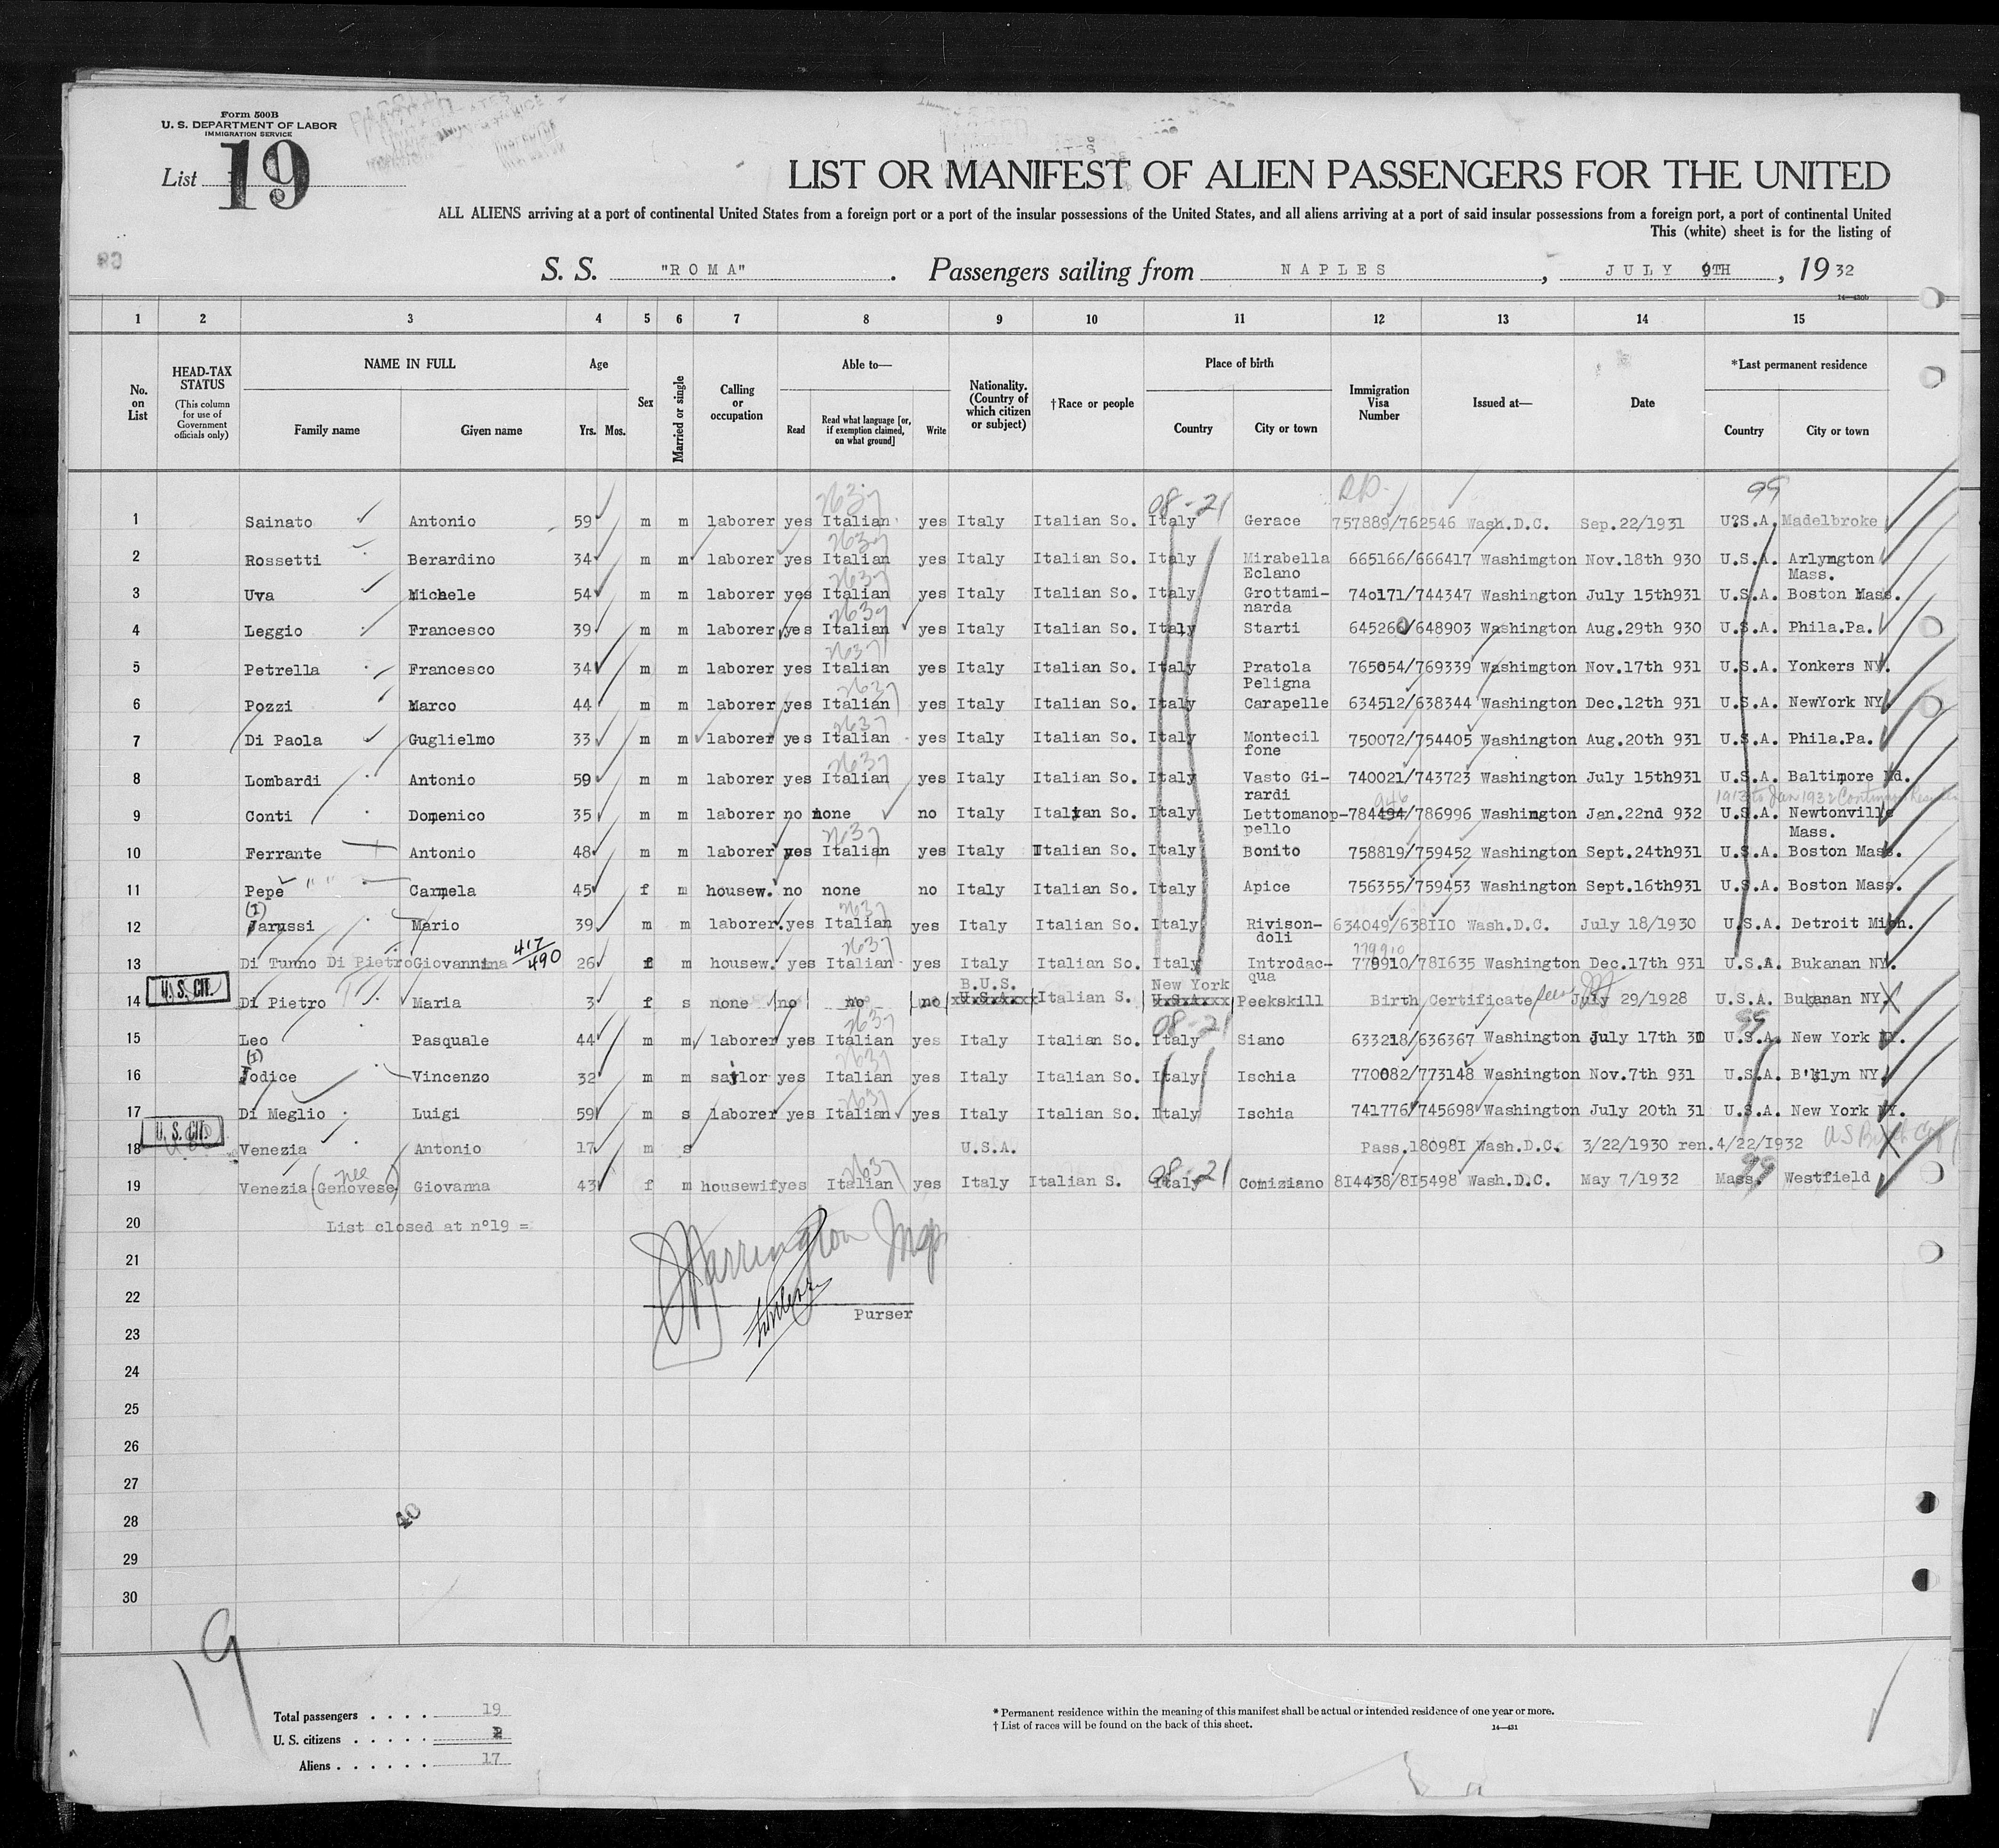 Form 500B
U. S. DEPARTMENT OF LABOR
IMMIGRATION SERVICE
List 19
LIST OR MANIFEST OF ALIEN PASSENGERS FOR THE UNITED
ALL ALIENS arriving at a port of continental United States from a foreign port or a port of the insular possessions of the United States, and all aliens arriving at a port of said insular possessions from a foreign port, a port of continental United
This (white) sheet is for the listing of
S. S. "ROMA" . Passengers sailing from NAPLES , JULY 9TH , 1932
14—430b
1 2 3 4 5 6 7 8 9 10 11 12 13 14 15
No. on List
HEAD-TAX STATUS (This column for use of Government officials only)
NAME IN FULL Family name Given name
Age Yrs. Mos.
Sex
Married or single
Calling or occupation
Able to— Read Read what language [or, if exemption claimed, on what ground] Write
Nationality. (Country of which citizen or subject)
†Race or people
Place of birth Country City or town
Immigration Visa Number
Issued at—
Date
*Last permanent residence Country City or town
2637 08-21 99
1 Sainato Antonio 59 m m laborer yes Italian yes Italy Italian So. Italy Gerace 757889/762546 Wash.D.C. Sep.22/1931 U?S.A. Madelbroke
2637
2 Rossetti Berardino 34 m m laborer yes Italian yes Italy Italian So. Italy Mirabella Eclano 665166/666417 Washimgton Nov.18th 930 U.S.A. Arlymgton Mass.
2637
3 Uva Michele 54 m m laborer yes Italian yes Italy Italian So. Italy Grottaminarda 740171/744347 Washington July 15th931 U.S.A. Boston Mass.
2637
4 Leggio Francesco 39 m m laborer yes Italian yes Italy Italian So. Italy Starti 645260/648903 Washington Aug.29th 930 U.S.A. Phila.Pa.
2637
5 Petrella Francesco 34 m m laborer yes Italian yes Italy Italian So. Italy Pratola Peligna 765054/769339 Washimgton Nov.17th 931 U.S.A. Yonkers NY.
2637
6 Pozzi Marco 44 m m laborer yes Italian yes Italy Italian So. Italy Carapelle 634512/638344 Washington Dec.12th 931 U.S.A. NewYork NY
2637
7 Di Paola Guglielmo 33 m m laborer yes Italian yes Italy Italian So. Italy Montecil fone 750072/754405 Washington Aug.20th 931 U.S.A. Phila.Pa.
2637
8 Lombardi Antonio 59 m m laborer yes Italian yes Italy Italian So. Italy Vasto Gi-rardi 740021/743723 Washington July 15th931 U.S.A. Baltimore Md.
946 1913 to Jan 1932
9 Conti Domenico 35 m m laborer no none no Italy Italian So. Italy Lettomanop-pello 784494/786996 Washington Jan.22nd 932 U.S.A. Newtonville Mass.
2637
10 Ferrante Antonio 48 m m laborer yes Italian yes Italy Italian So. Italy Bonito 758819/759452 Washington Sept.24th931 U.S.A. Boston Mass.
11 Pepe " " Carmela 45 f m housew. no none no Italy Italian So. Italy Apice 756355/759453 Washington Sept.16th931 U.S.A. Boston Mass.
(I) 2637
12 Jarussi Mario 39 m m laborer.yes Italian yes Italy Italian So. Italy Rivison-doli 634049/638IIO Wash.D.C. July 18/1930 U.S.A. Detroit Mich.
417/490 2637 779910
13 Di Tunno Di Pietro Giovannina 26 f m housew. yes Italian yes Italy Italian So. Italy Introdac-qua 779910/781635 Washington Dec.17th 931 U.S.A. Bukanan NY.
U. S. CIT. B.U.S. New York
14 Di Pietro Maria 3 f s none no no no U.S.A.xxxx Italian S. U.S.A.xxx Peekskill Birth Certificate July 29/1928 U.S.A. Bukanan NY.
2637 08-21 99
15 Leo Pasquale 44 m m laborer yes Italian yes Italy Italian So. Italy Siano 633218/636367 Washington July 17th 30 U.S.A. New York NY.
(I) 2637
16 Jodice Vincenzo 32 m m saylor yes Italian yes Italy Italian So. Italy Ischia 770082/773148 Washington Nov.7th 931 U.S.A. B'klyn NY.
2637
17 Di Meglio Luigi 59 m s laborer yes Italian yes Italy Italian So. Italy Ischia 741776/745698 Washington July 20th 31 U.S.A. New York NY.
U. S. CIT.
18 Venezia Antonio 17 m s U.S.A. Pass.180981 Wash.D.C. 3/22/1930 ren.4/22/1932 US Birth
nee 2637 08-21 99
19 Venezia (Genovese) Giovanna 43 f m housewif yes Italian yes Italy Italian S. Italy Comiziano 8I4438/8I5498 Wash.D.C. May 7/1932 Mass. Westfield
20 List closed at n°19 =
21
22
Purser
23
24
25
26
27
28
40
29
30
19
Total passengers . . . . 19
U. S. citizens . . . . . 2
Aliens . . . . . . 17
* Permanent residence within the meaning of this manifest shall be actual or intended residence of one year or more.
† List of races will be found on the back of this sheet.
14—431